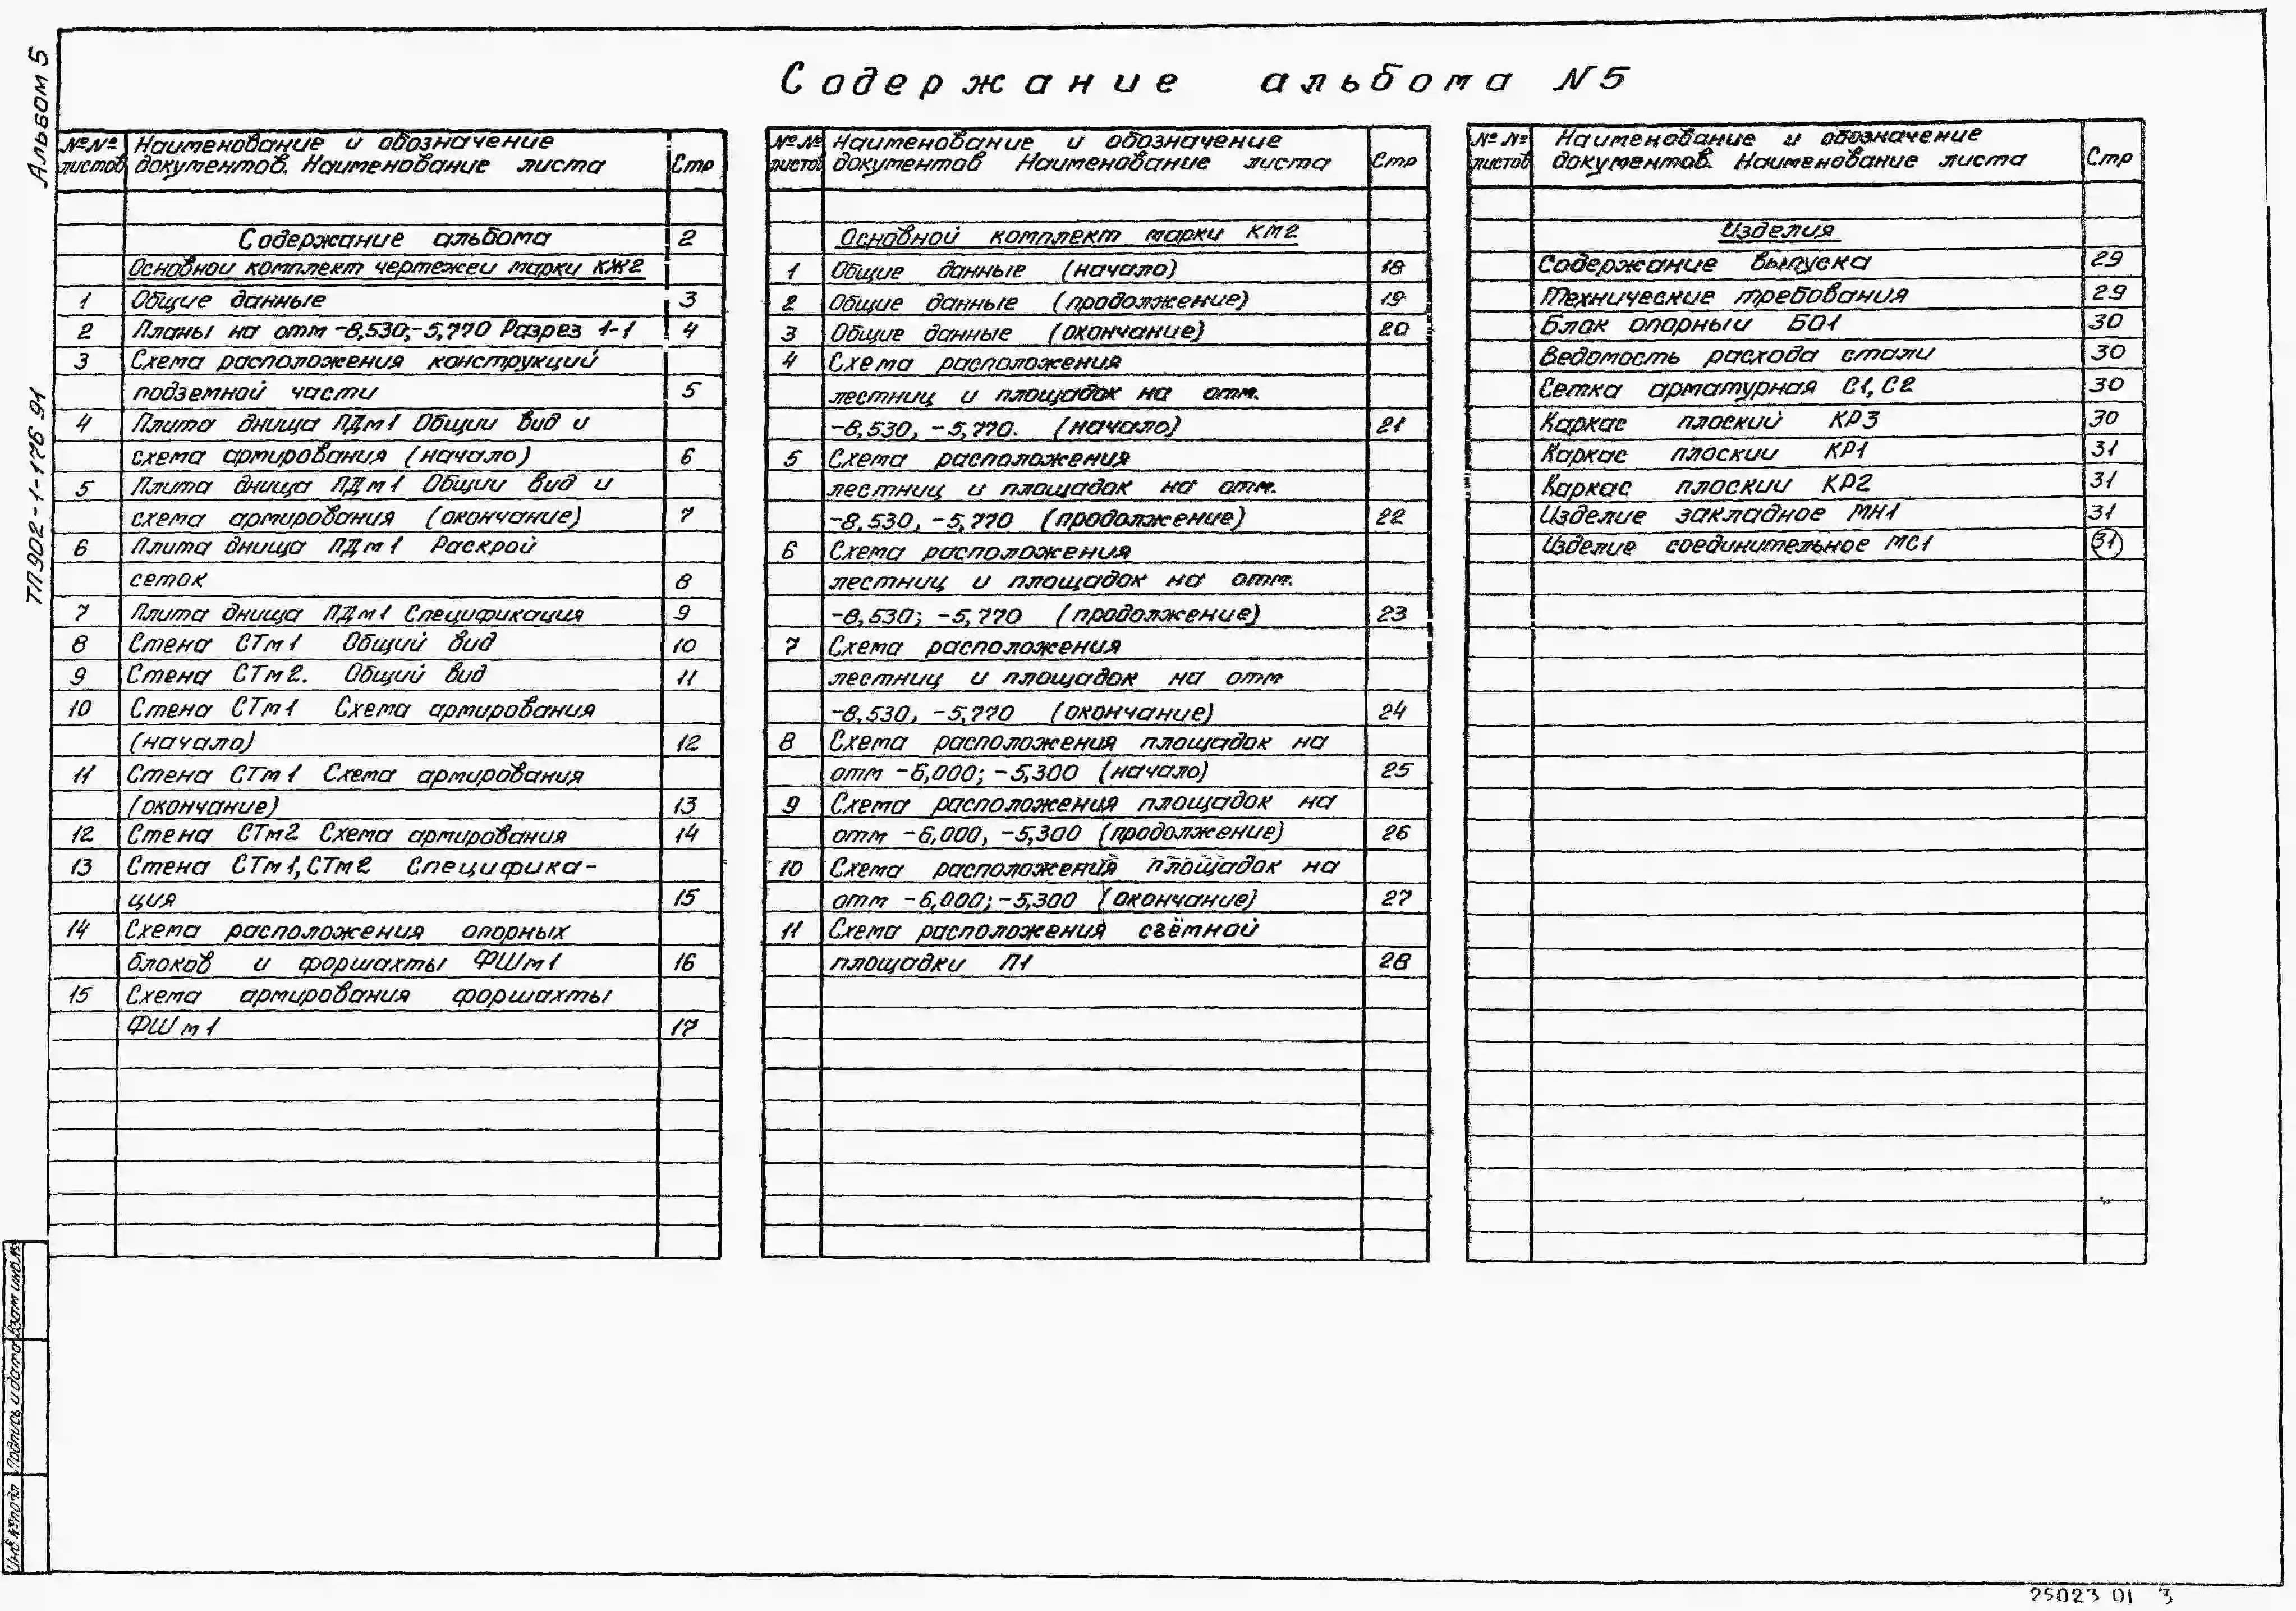 Альбом 5
ТП902-1-176 91
Содержание альбома N5
№№ листов
Наименование и обозначение
документов. Наименование листа
Стр
Содержание альбома 2
Основной комплект чертежей марки КЖ2
1 Общие данные 3
2 Планы на отм -8,530;-5,770 Разрез 1-1 4
3 Схема расположения конструкций
подземной части 5
4 Плита днища ПДм1 Общий вид и
схема армирования (начало) 6
5 Плита днища ПДм1 Общий вид и
схема армирования (окончание) 7
6 Плита днища ПДм1 Раскрой
сеток 8
7 Плита днища ПДм1 Спецификация 9
8 Стена СТм1 Общий вид 10
9 Стена СТм2. Общий вид 11
10 Стена СТм1 Схема армирования
(начало) 12
11 Стена СТм1 Схема армирования
(окончание) 13
12 Стена СТм2 Схема армирования 14
13 Стена СТм1, СТм2 Специфика-
ция 15
14 Схема расположения опорных
блоков и форшахты ФШм1 16
15 Схема армирования форшахты
ФШм1 17
№№ листов
Наименование и обозначение
документов Наименование листа
Стр
Основной комплект марки КМ2
1 Общие данные (начало) 18
2 Общие данные (продолжение) 19
3 Общие данные (окончание) 20
4 Схема расположения
лестниц и площадок на отм.
-8,530, -5,770. (начало) 21
5 Схема расположения
лестниц и площадок на отм.
-8,530, -5,770 (продолжение) 22
6 Схема расположения
лестниц и площадок на отм.
-8,530; -5,770 (продолжение) 23
7 Схема расположения
лестниц и площадок на отм
-8,530, -5,770 (окончание) 24
8 Схема расположения площадок на
отм -6,000; -5,300 (начало) 25
9 Схема расположения площадок на
отм -6,000, -5,300 (продолжение) 26
10 Схема расположения площадок на
отм -6,000; -5,300 (окончание) 27
11 Схема расположения съёмной
площадки П1 28
№№ листов
Наименование и обозначение
документов. Наименование листа
Стр
Изделия
Содержание выпуска 29
Технические требования 29
Блок опорный БО1 30
Ведомость расхода стали 30
Сетка арматурная С1, С2 30
Каркас плоский КР3 30
Каркас плоский КР1 31
Каркас плоский КР2 31
Изделие закладное МН1 31
Изделие соединительное МС1 31
Взам инв.№
Подпись и дата
Инв № подл
25023 01 3